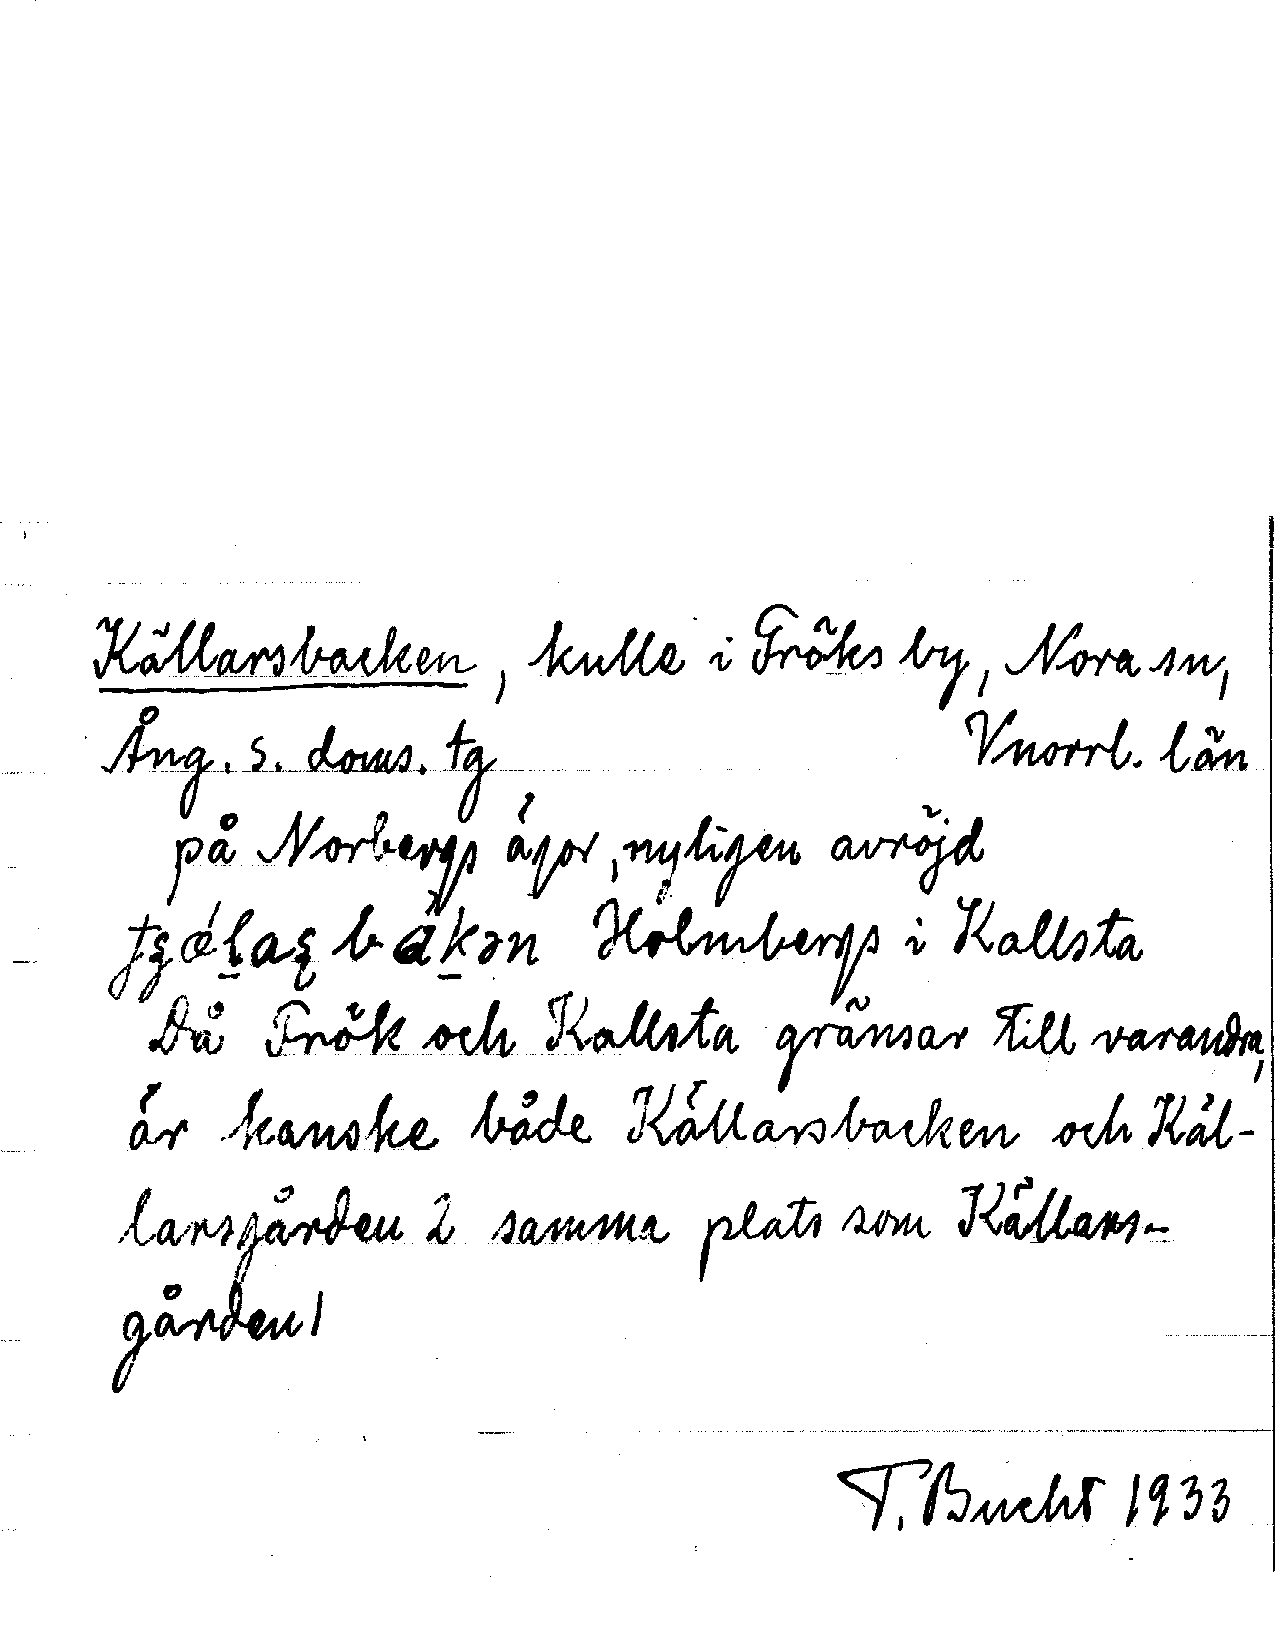 Källarsbacken, kulle i Fröks by, Nora sn,
Ång. s. doms. tg Vnorrl. län
på Norbergs ägor, nyligen avröjd
Holmbergs i Kallsta
Då Frök och Kallsta gränsar till varandra,
är kanske både Källarsbacken och Käl-
larsgården 2 samma plats som Källars-
gården 1
T. Bucht 1933